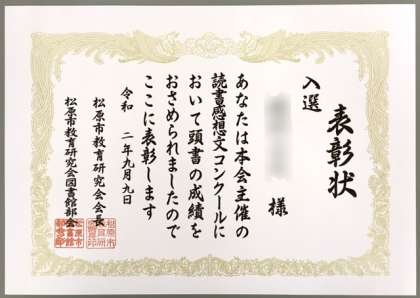 表彰状
入選
様
あなたは本会主催の
読書感想文コンクールに
おいて頭書の成績を
おさめられましたので
ここに表彰します
令和 二年九月九日
松原市教育研究会会長
松原市教育研究会図書館部会